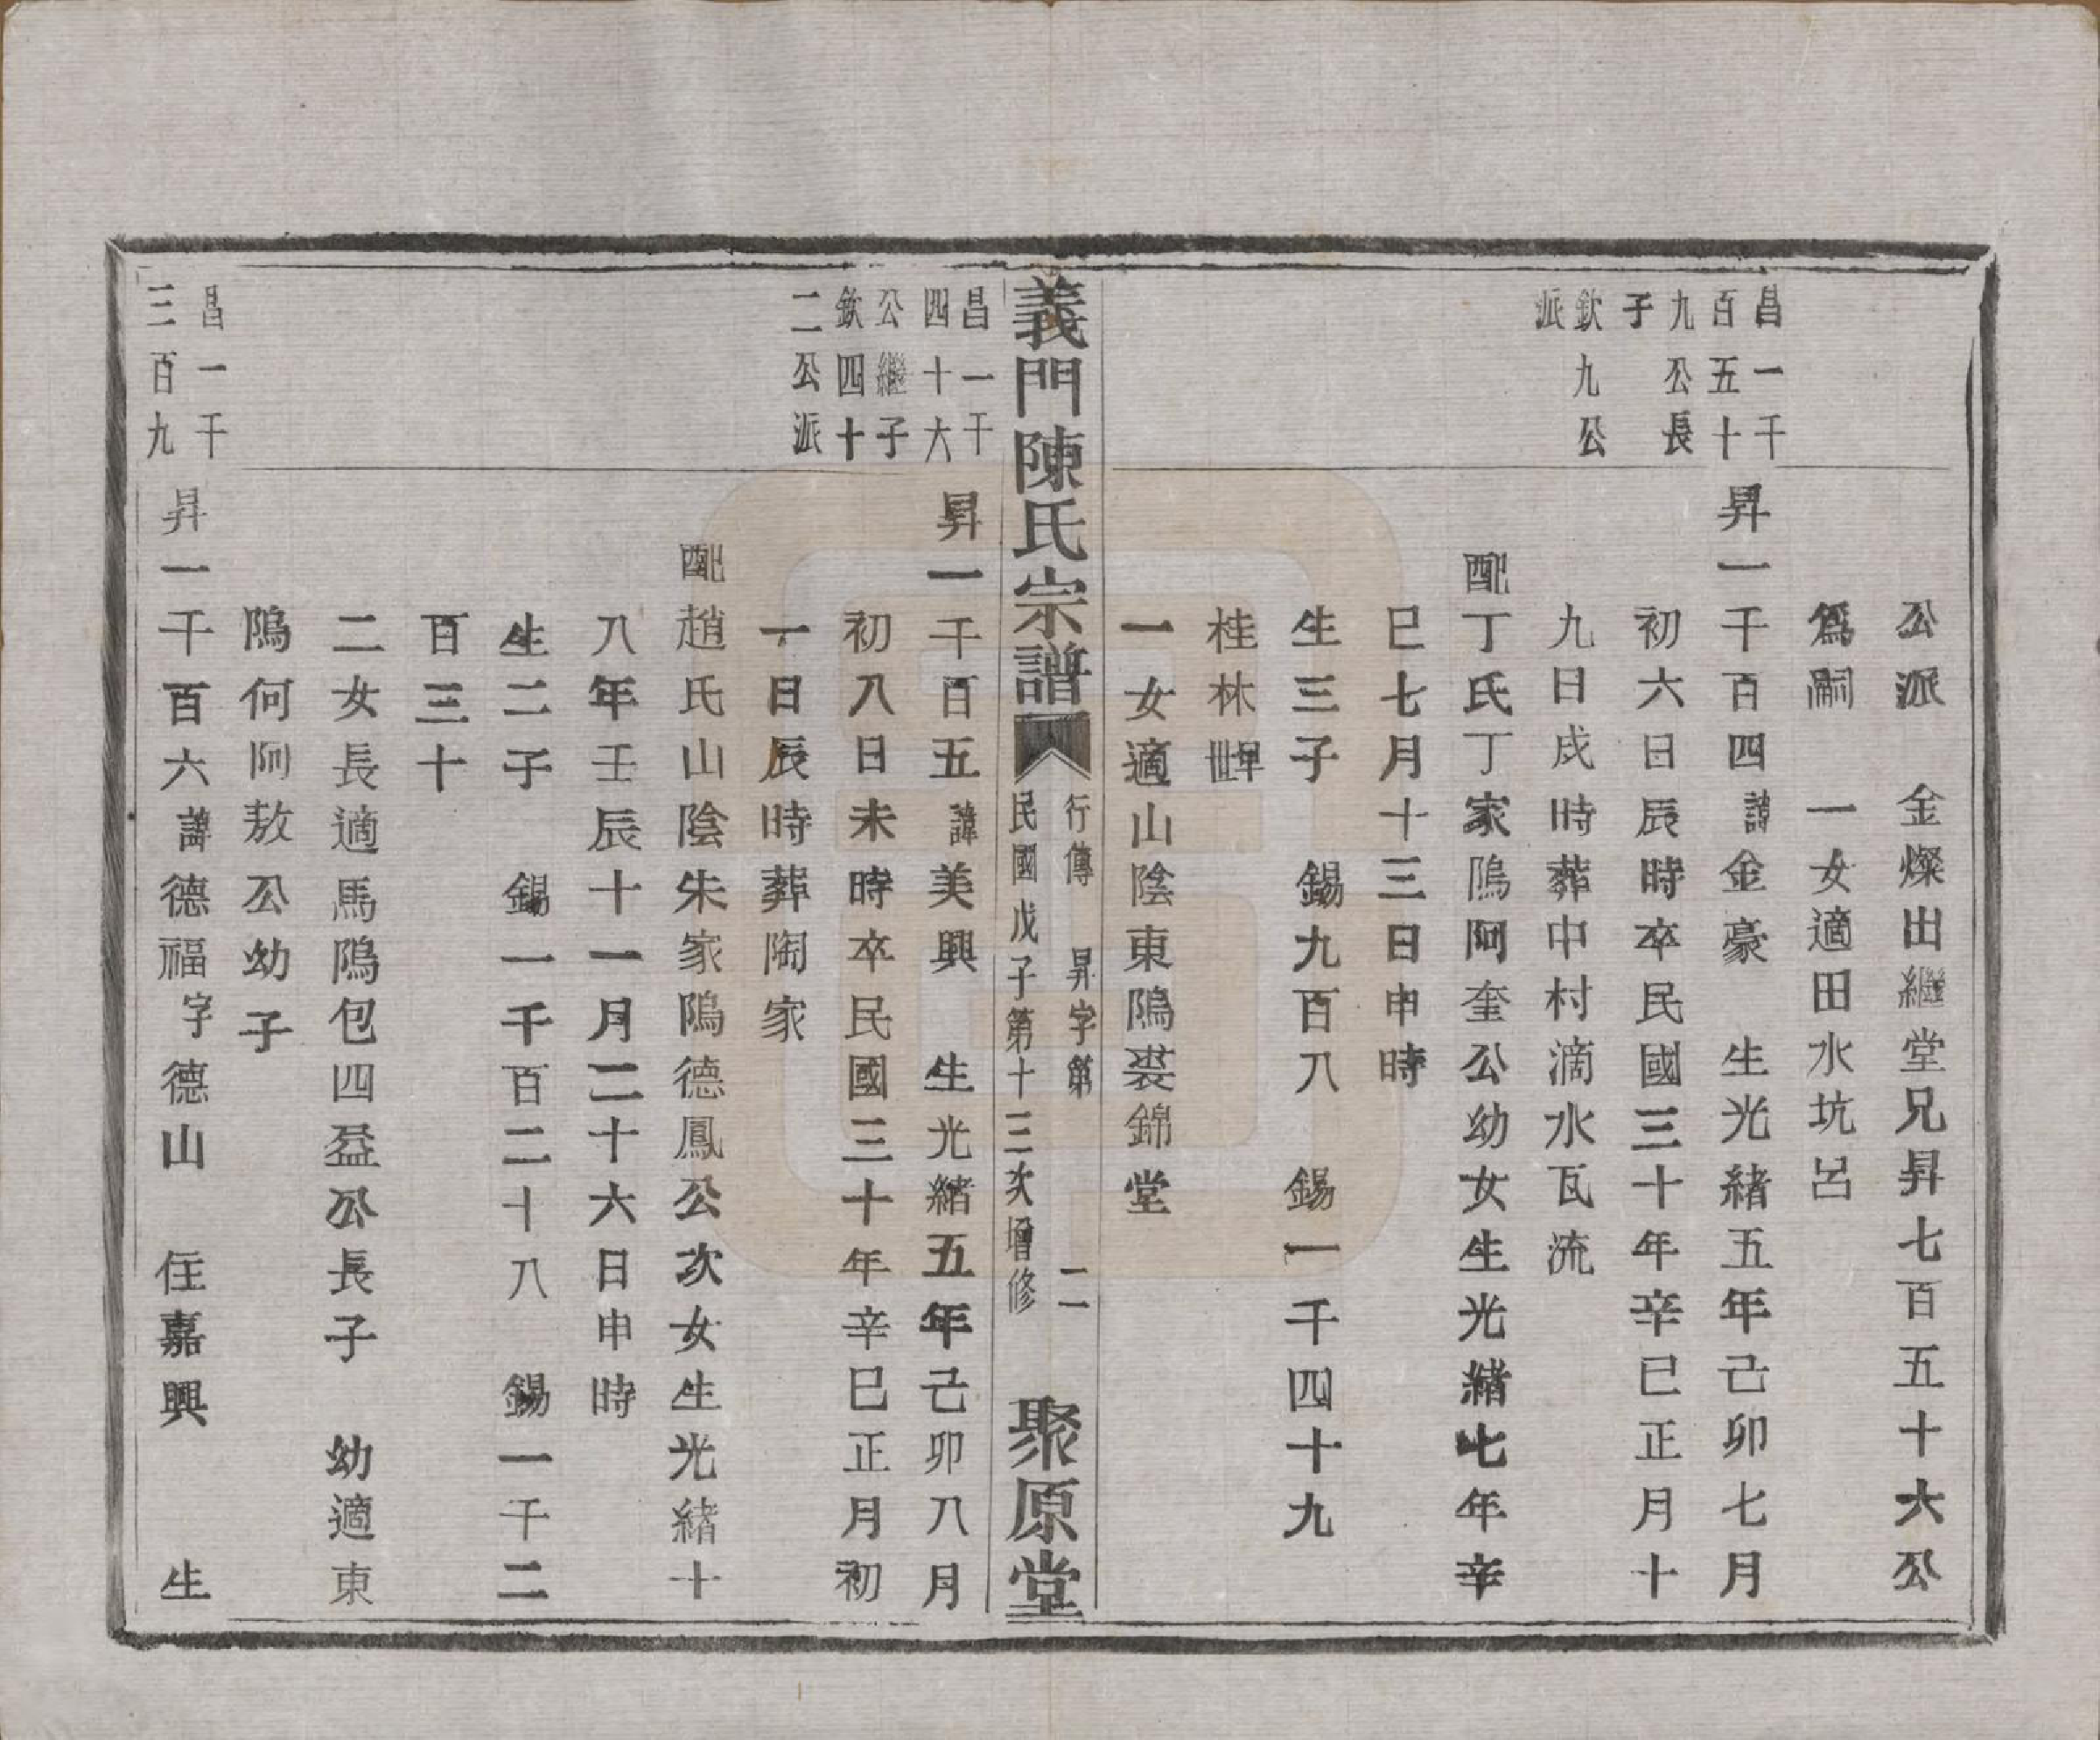 公派　金燦出繼堂兄昇七百五十六公
爲嗣　一女適田水坑呂
昌一千
百五十
九公長
子
欽九公
派
昇一千百四諱金豪　生光緒五年己卯七月
初六日辰時卒民國三十年辛巳正月十
九日戌時葬中村滴水瓦流
配丁氏丁家隝阿奎公幼女生光緒七年辛
巳七月十三日申時
生三子　錫九百八　錫一千四十九
桂林早世
一女適山陰東隝裘錦堂
義門陳氏宗譜
行傳　昇字第　二
民國戊子第十三次增修
聚原堂
昌一千
四十六
公繼子
欽四十
二公派
昇一千百五諱美興　生光緒五年己卯八月
初八日未時卒民國三十年辛巳正月初
一日辰時葬陶家
配趙氏山陰朱家隝德鳳公次女生光緒十
八年壬辰十一月二十六日申時
生二子　錫一千百二十八　錫一千二
百三十
二女長適馬隝包四益公長子　幼適東
隝何阿敖公幼子
昌一千
三百九
昇一千百六諱德福字德山　住嘉興　生